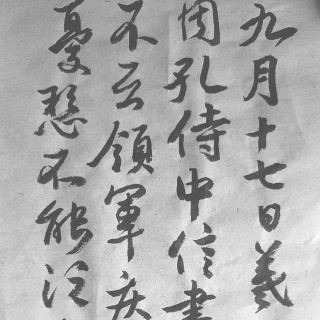 九月十七日羲
因孔侍中信書
不云領軍疾
憂愁不能忘